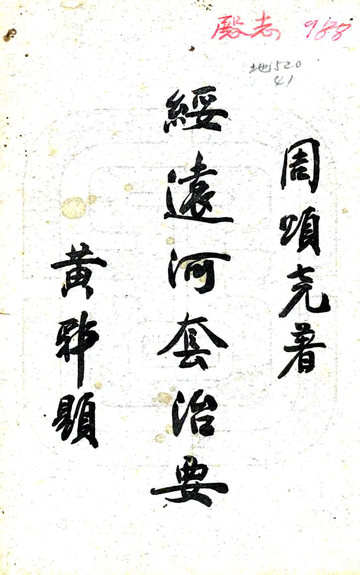 殹志 988
地520
41
周頌尧著
綏遠河套治要
黄郛題